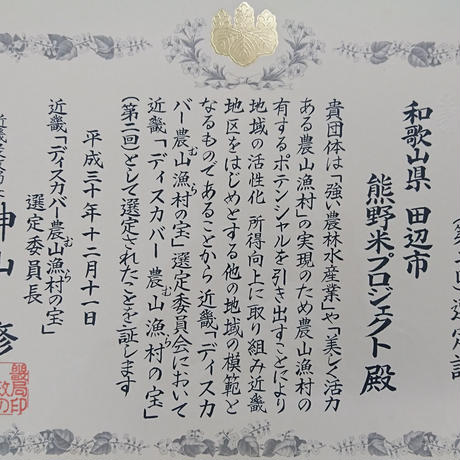 選定証
和歌山県 田辺市
熊野米プロジェクト 殿
貴団体は「強い農林水産業」や「美しく活力
ある農山漁村」の実現のため農山漁村の
有するポテンシャルを引き出すことにより
地域の活性化 所得向上に取り組み近畿
地区をはじめとする他の地域の模範と
なるものであることから近畿「ディスカ
バー農山漁村の宝」選定委員会において
近畿「ディスカバー農山漁村の宝」
(第二回)として選定されたことを証します
平成三十年十二月十一日
近畿「ディスカバー農山漁村の宝」
選定委員長
神山 修